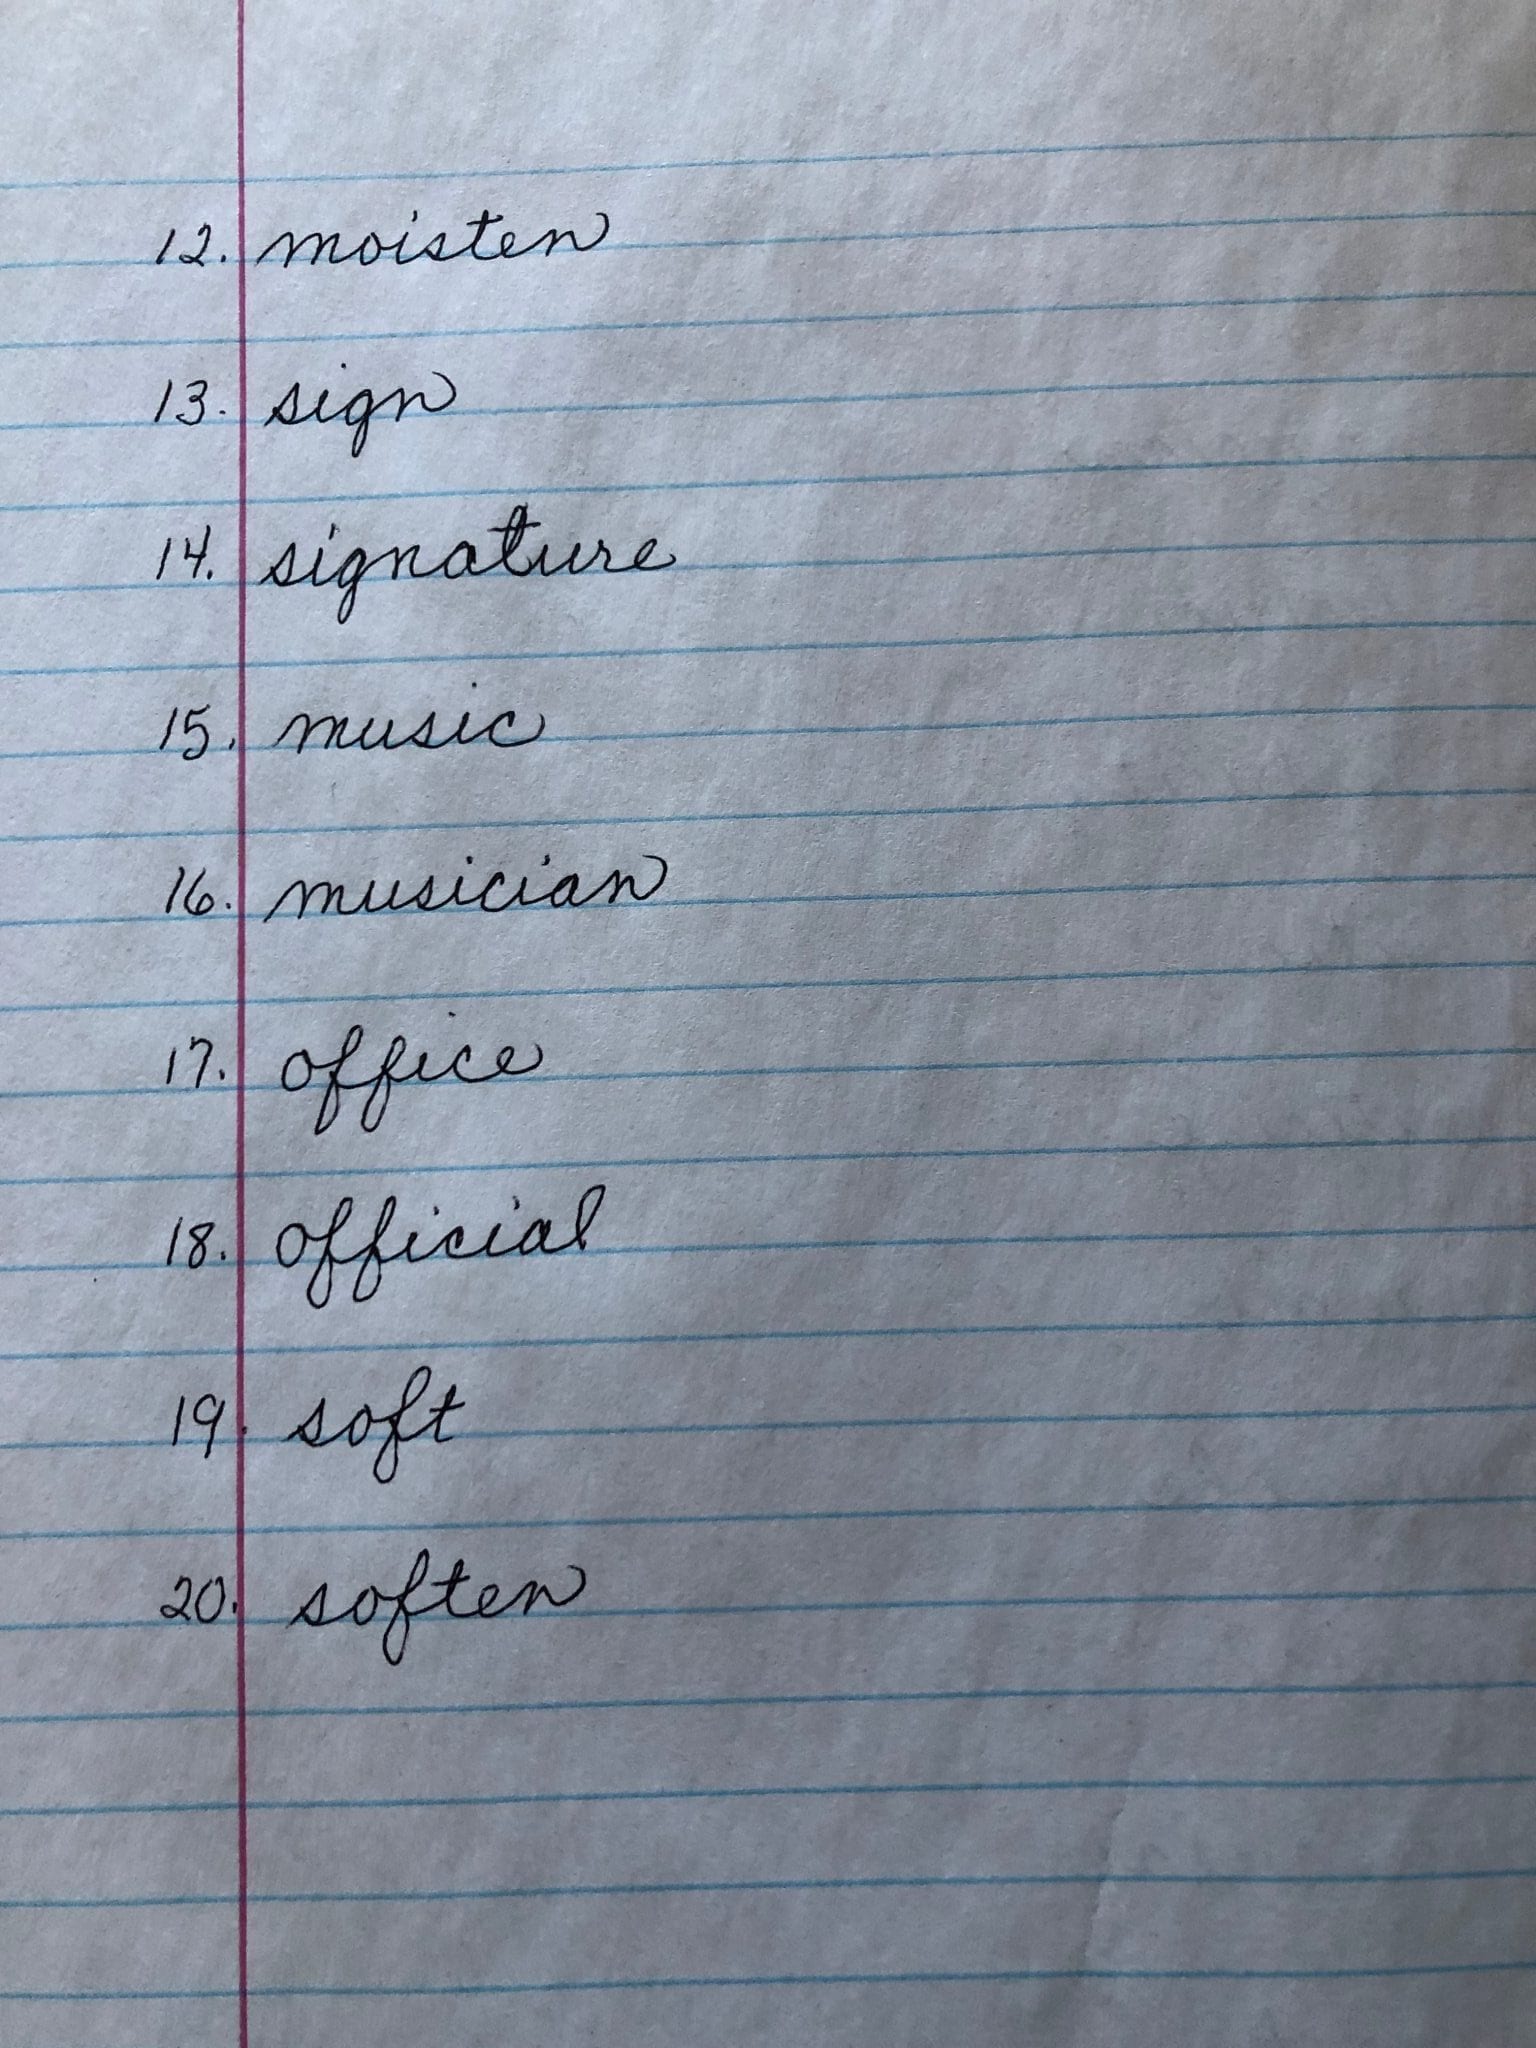 12. moisten
13. sign
14. signature
15. music
16. musician
17. office
18. official
19. soft
20. soften